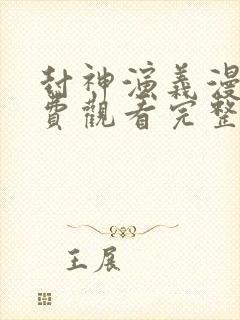 封神演義漫
費觀看完整
王展